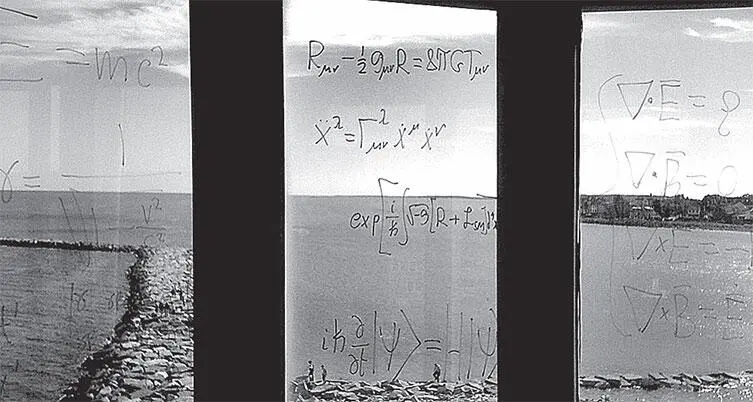 = mc²
γ = 1
√ - v²/c²
R_μν - ½ g_μν R = 8πG T_μν
ẍ^λ = Γ^λ_μν ẋ^μ ẋ^ν
exp[ i/ħ ∫ √-g [R + ℒ_SM]
iħ ∂/∂t |ψ⟩ = H|ψ⟩
∇·E̅ = ρ
∇·B̅ = 0
∇×E̅ = -
∇×B̅ =